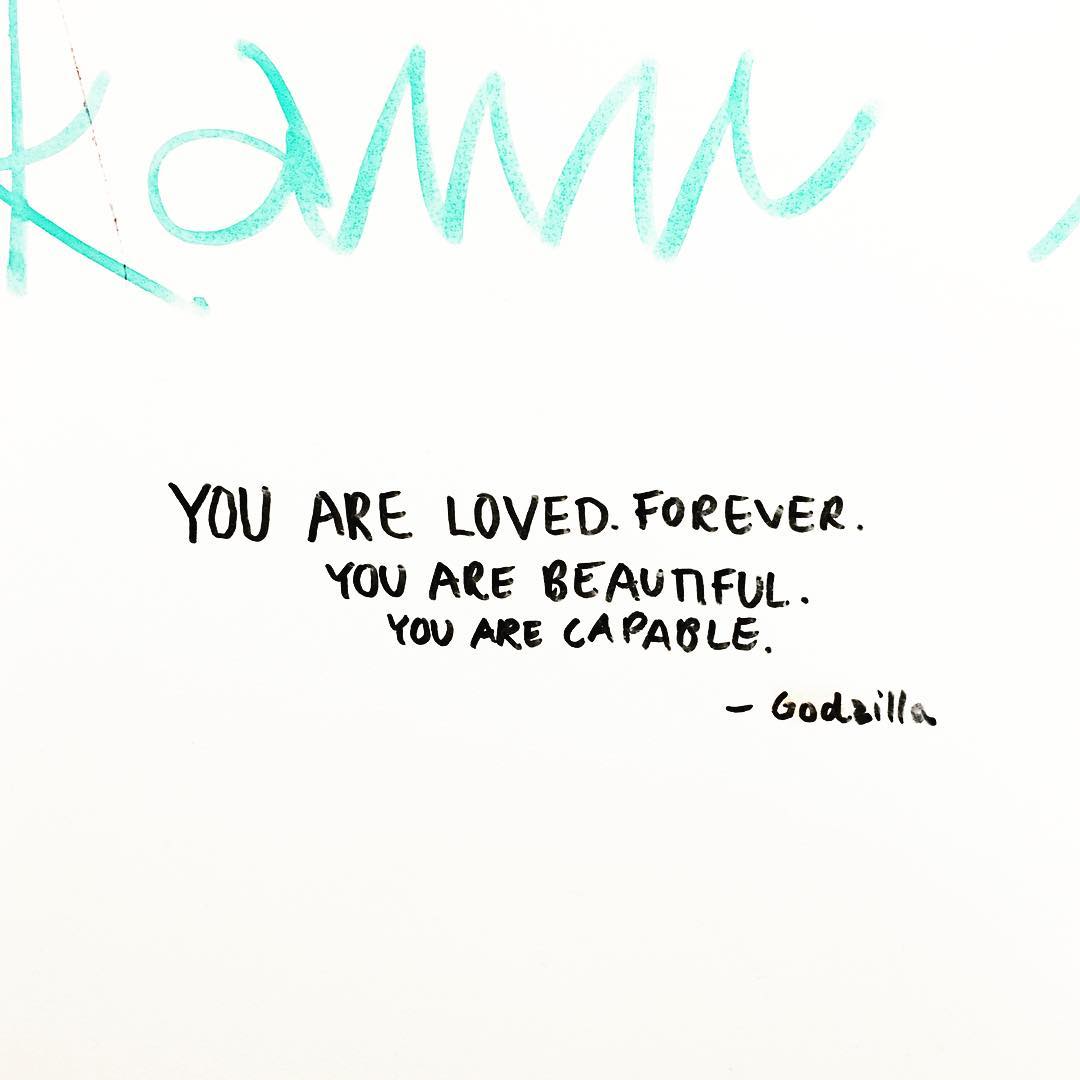 YOU ARE LOVED. FOREVER.
YOU ARE BEAUTIFUL.
YOU ARE CAPABLE.
- Godzilla